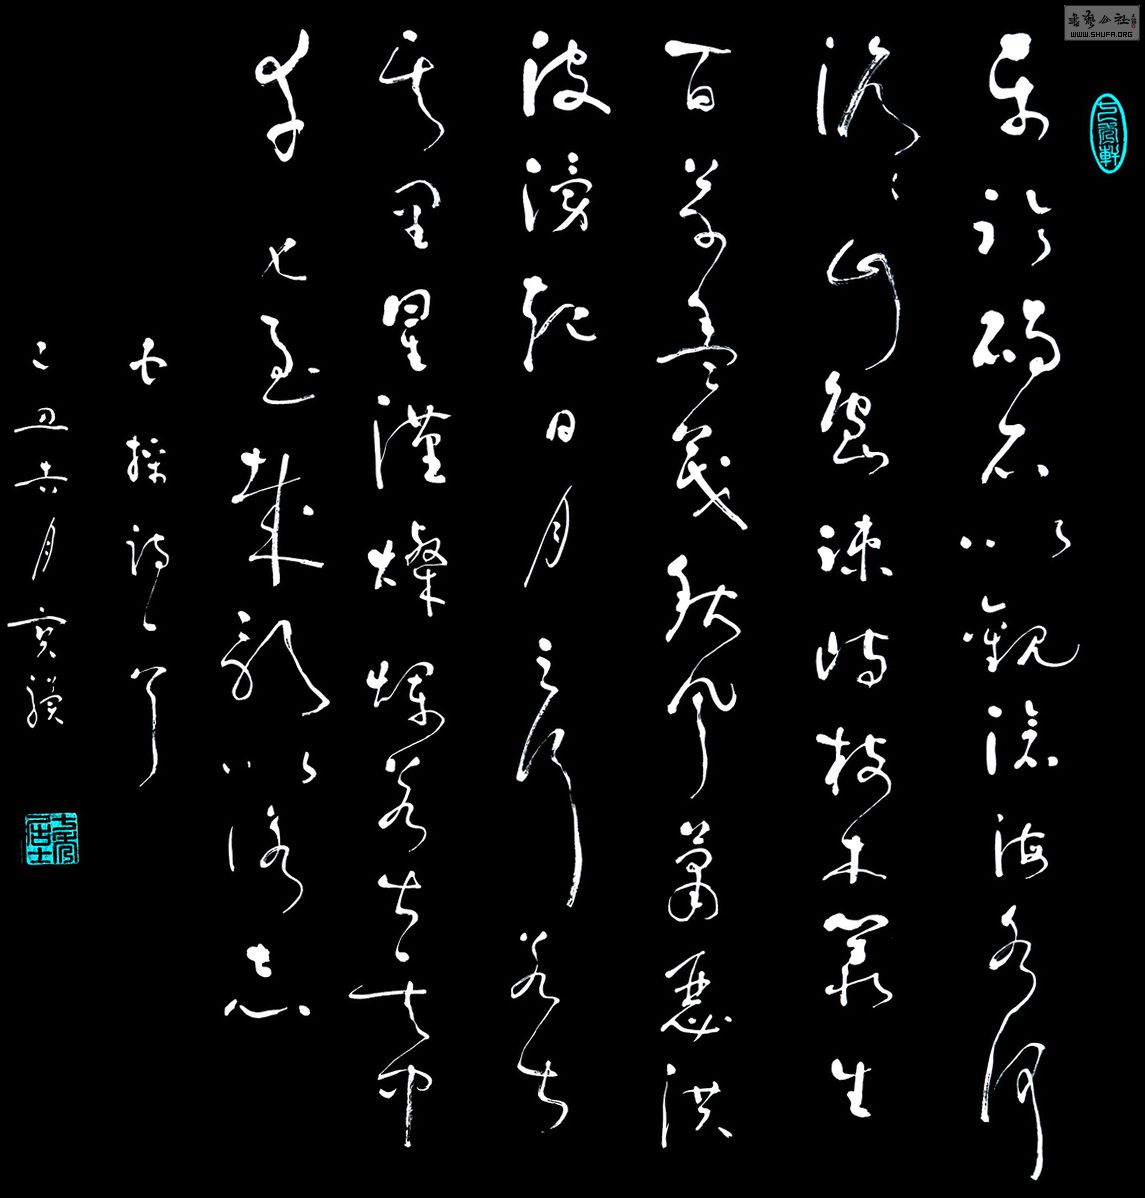 東臨碣石以觀滄海水何
澹澹山島竦峙樹木叢生
百草豐茂秋風蕭瑟洪
波湧起日月之行若出
其里星漢燦爛若出其中
幸甚至哉歌以詠志
操詩
己丑六月
書藝公社
WWW.SHUFA.ORG